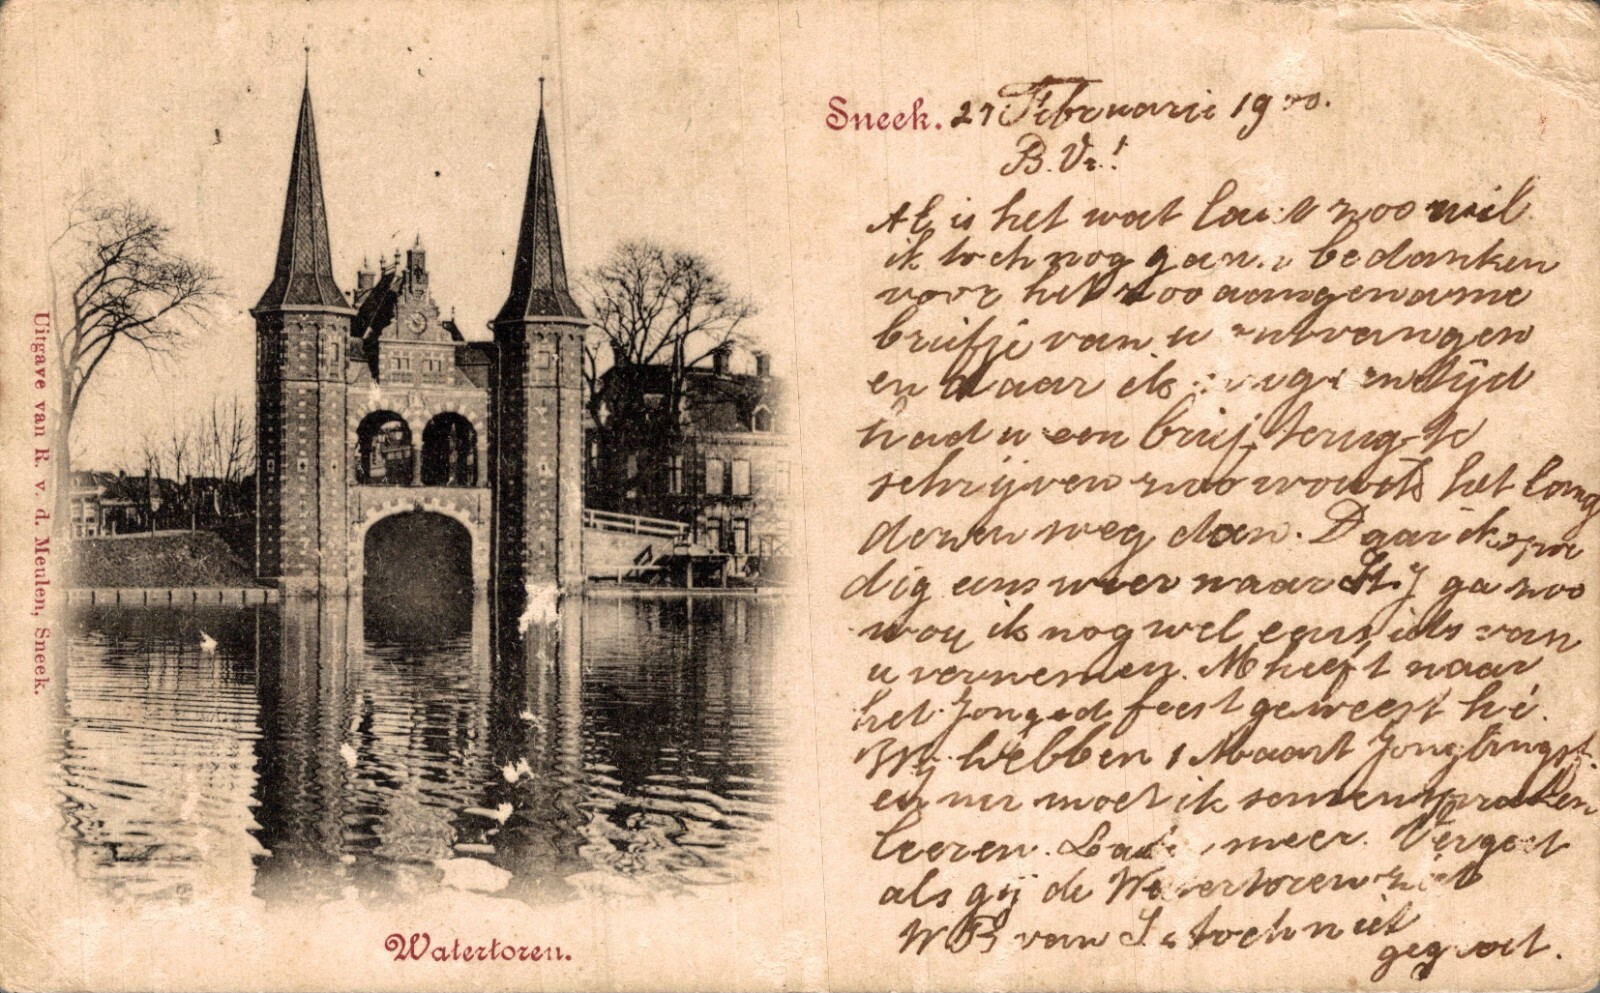 Sneek. 27 Februarie 1900.
B. Vr.!
Al is het wat laat zoo wil
ik toch nog gaan bedanken
voor het zoo aangename
briefje van u ontvangen
en daar ik
had u een brief terug te
schrijven zoo wordt het lang
weg dan. Daar ik spoe
dig eens weer naar St. J ga zoo
wou ik nog wel eens iets van
u vernemen. M heeft naar
het Jonged feest geweest hé.
Wij hebben 1 Maart Jonglingsf.
en nu moet ik samenspraken
leeren. meer. Vergeet
als gij de Watertoren ziet
W B van S toch niet
gegroet.
Watertoren.
Uitgave van R. v. d. Meulen, Sneek.